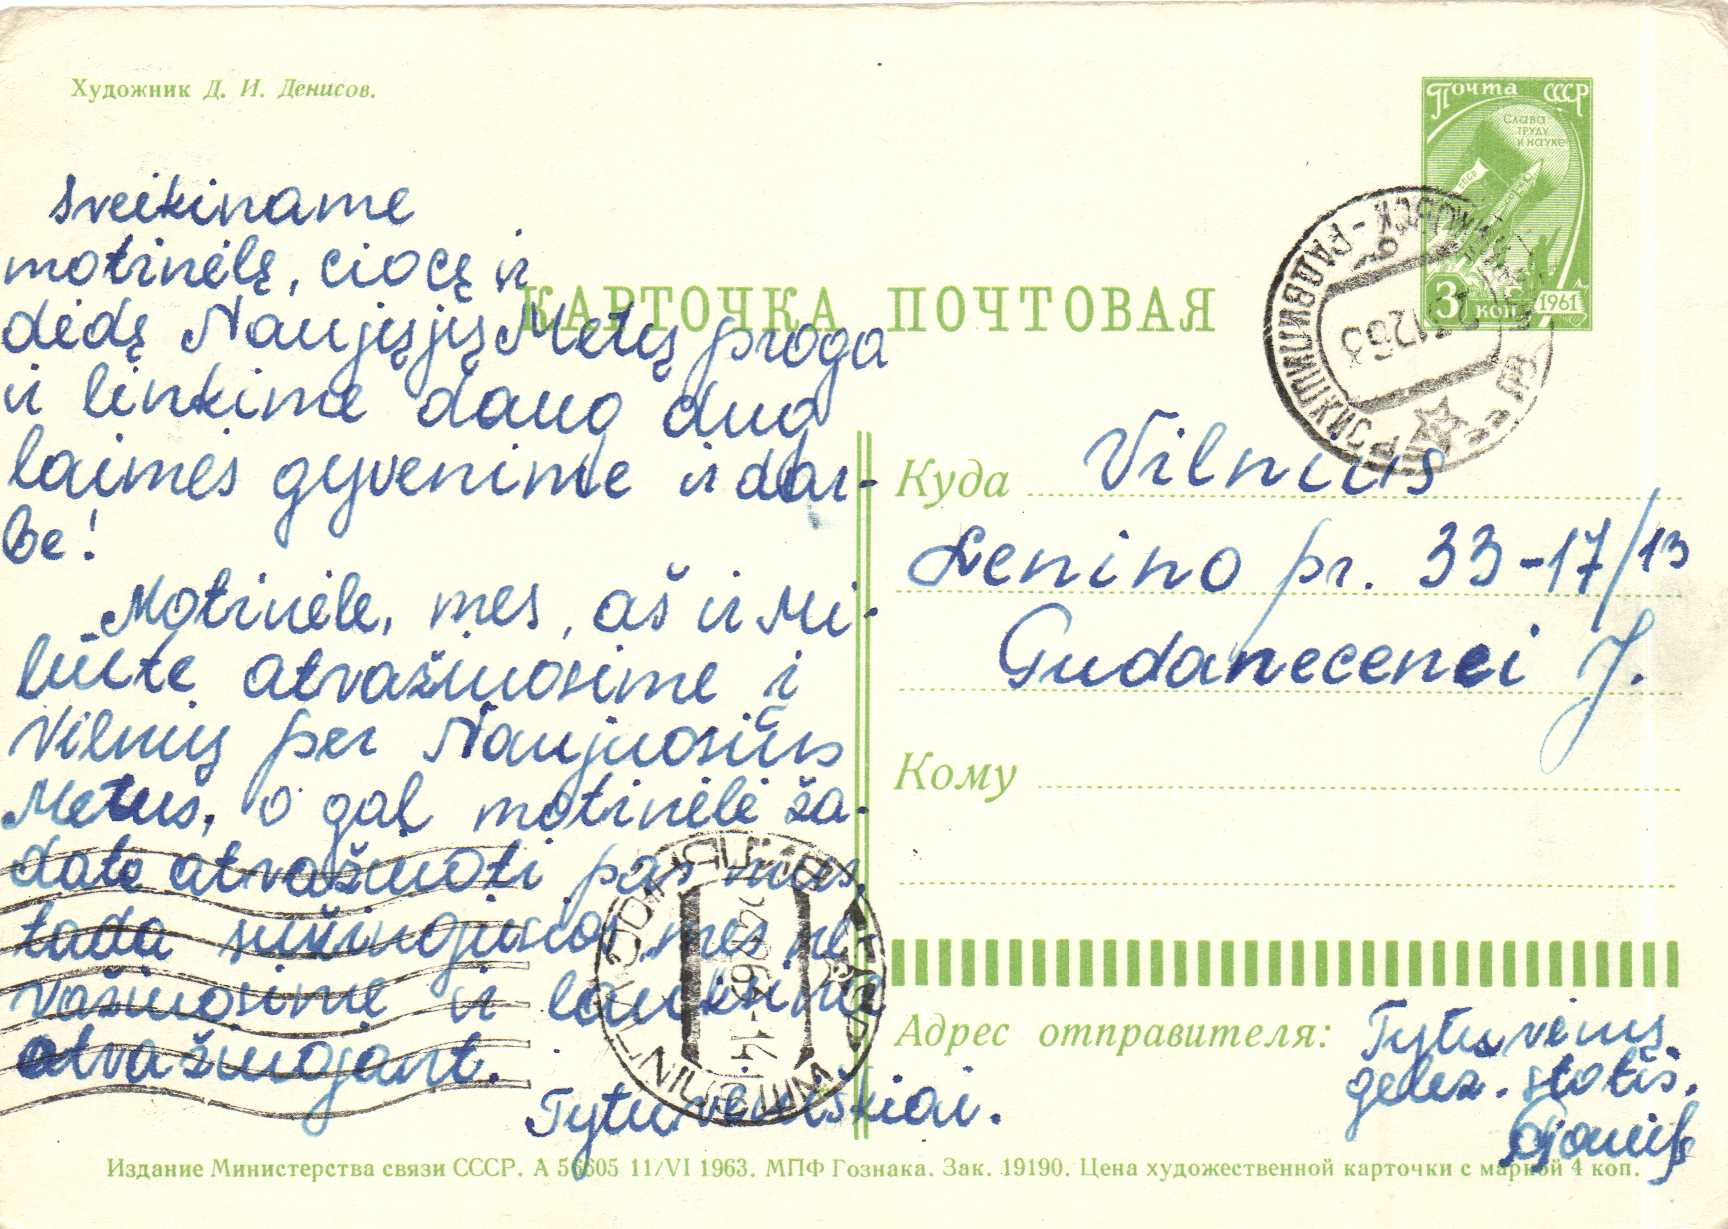 Художник Д. И. Денисов.
Почта СССР
Слава
труду
и науке
3 коп
1961
КАРТОЧКА ПОЧТОВАЯ
Sveikiname
motinėlę, ciocę ir
dėdę Naujųjų Metų proga
ir linkime daug daug
laimės gyvenime ir dar-
be!
Motinėle, mes, aš ir Mi-
lūte atvažiuosime į
Vilnių per Naujuosius
Metus, o gal motinėlė ža-
date atvažiuoti pas mus,
tada mes ne
važiuosime ir lauksime
atvažiuojant.
Tytuvėniškiai.
Куда
Vilnius
Lenino pr. 33-17/13
J.
Кому
Адрес отправителя:
Tytuvėnų
gelež. stotis.
VILNIUS
Издание Министерства связи СССР. А 56605 11/VI 1963. МПФ Гознака. Зак. 19190. Цена художественной карточки с маркой 4 коп.